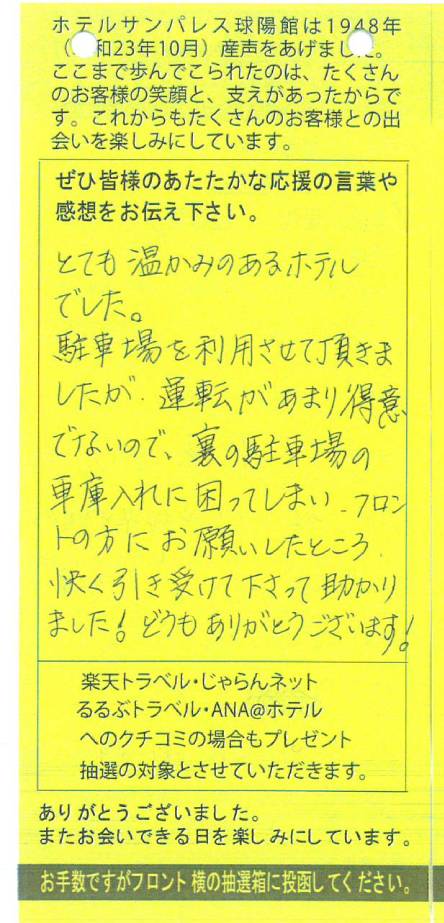 ホテルサンパレス球陽館は1948年
（ 和23年10月）産声をあげました。
ここまで歩んでこられたのは、たくさん
のお客様の笑顔と、支えがあったからで
す。これからもたくさんのお客様との出
会いを楽しみにしています。
ぜひ皆様のあたたかな応援の言葉や
感想をお伝え下さい。
とても温かみのあるホテル
でした。
駐車場を利用させて頂きま
したが、運転があまり得意
でないので、裏の駐車場の
車庫入れに困ってしまい、フロン
トの方にお願いしたところ、
快く引き受けて下さって助かり
ました！どうもありがとうございます！
楽天トラベル・じゃらんネット
るるぶトラベル・ANA@ホテル
へのクチコミの場合もプレゼント
抽選の対象とさせていただきます。
ありがとうございました。
またお会いできる日を楽しみにしています。
お手数ですがフロント横の抽選箱に投函してください。